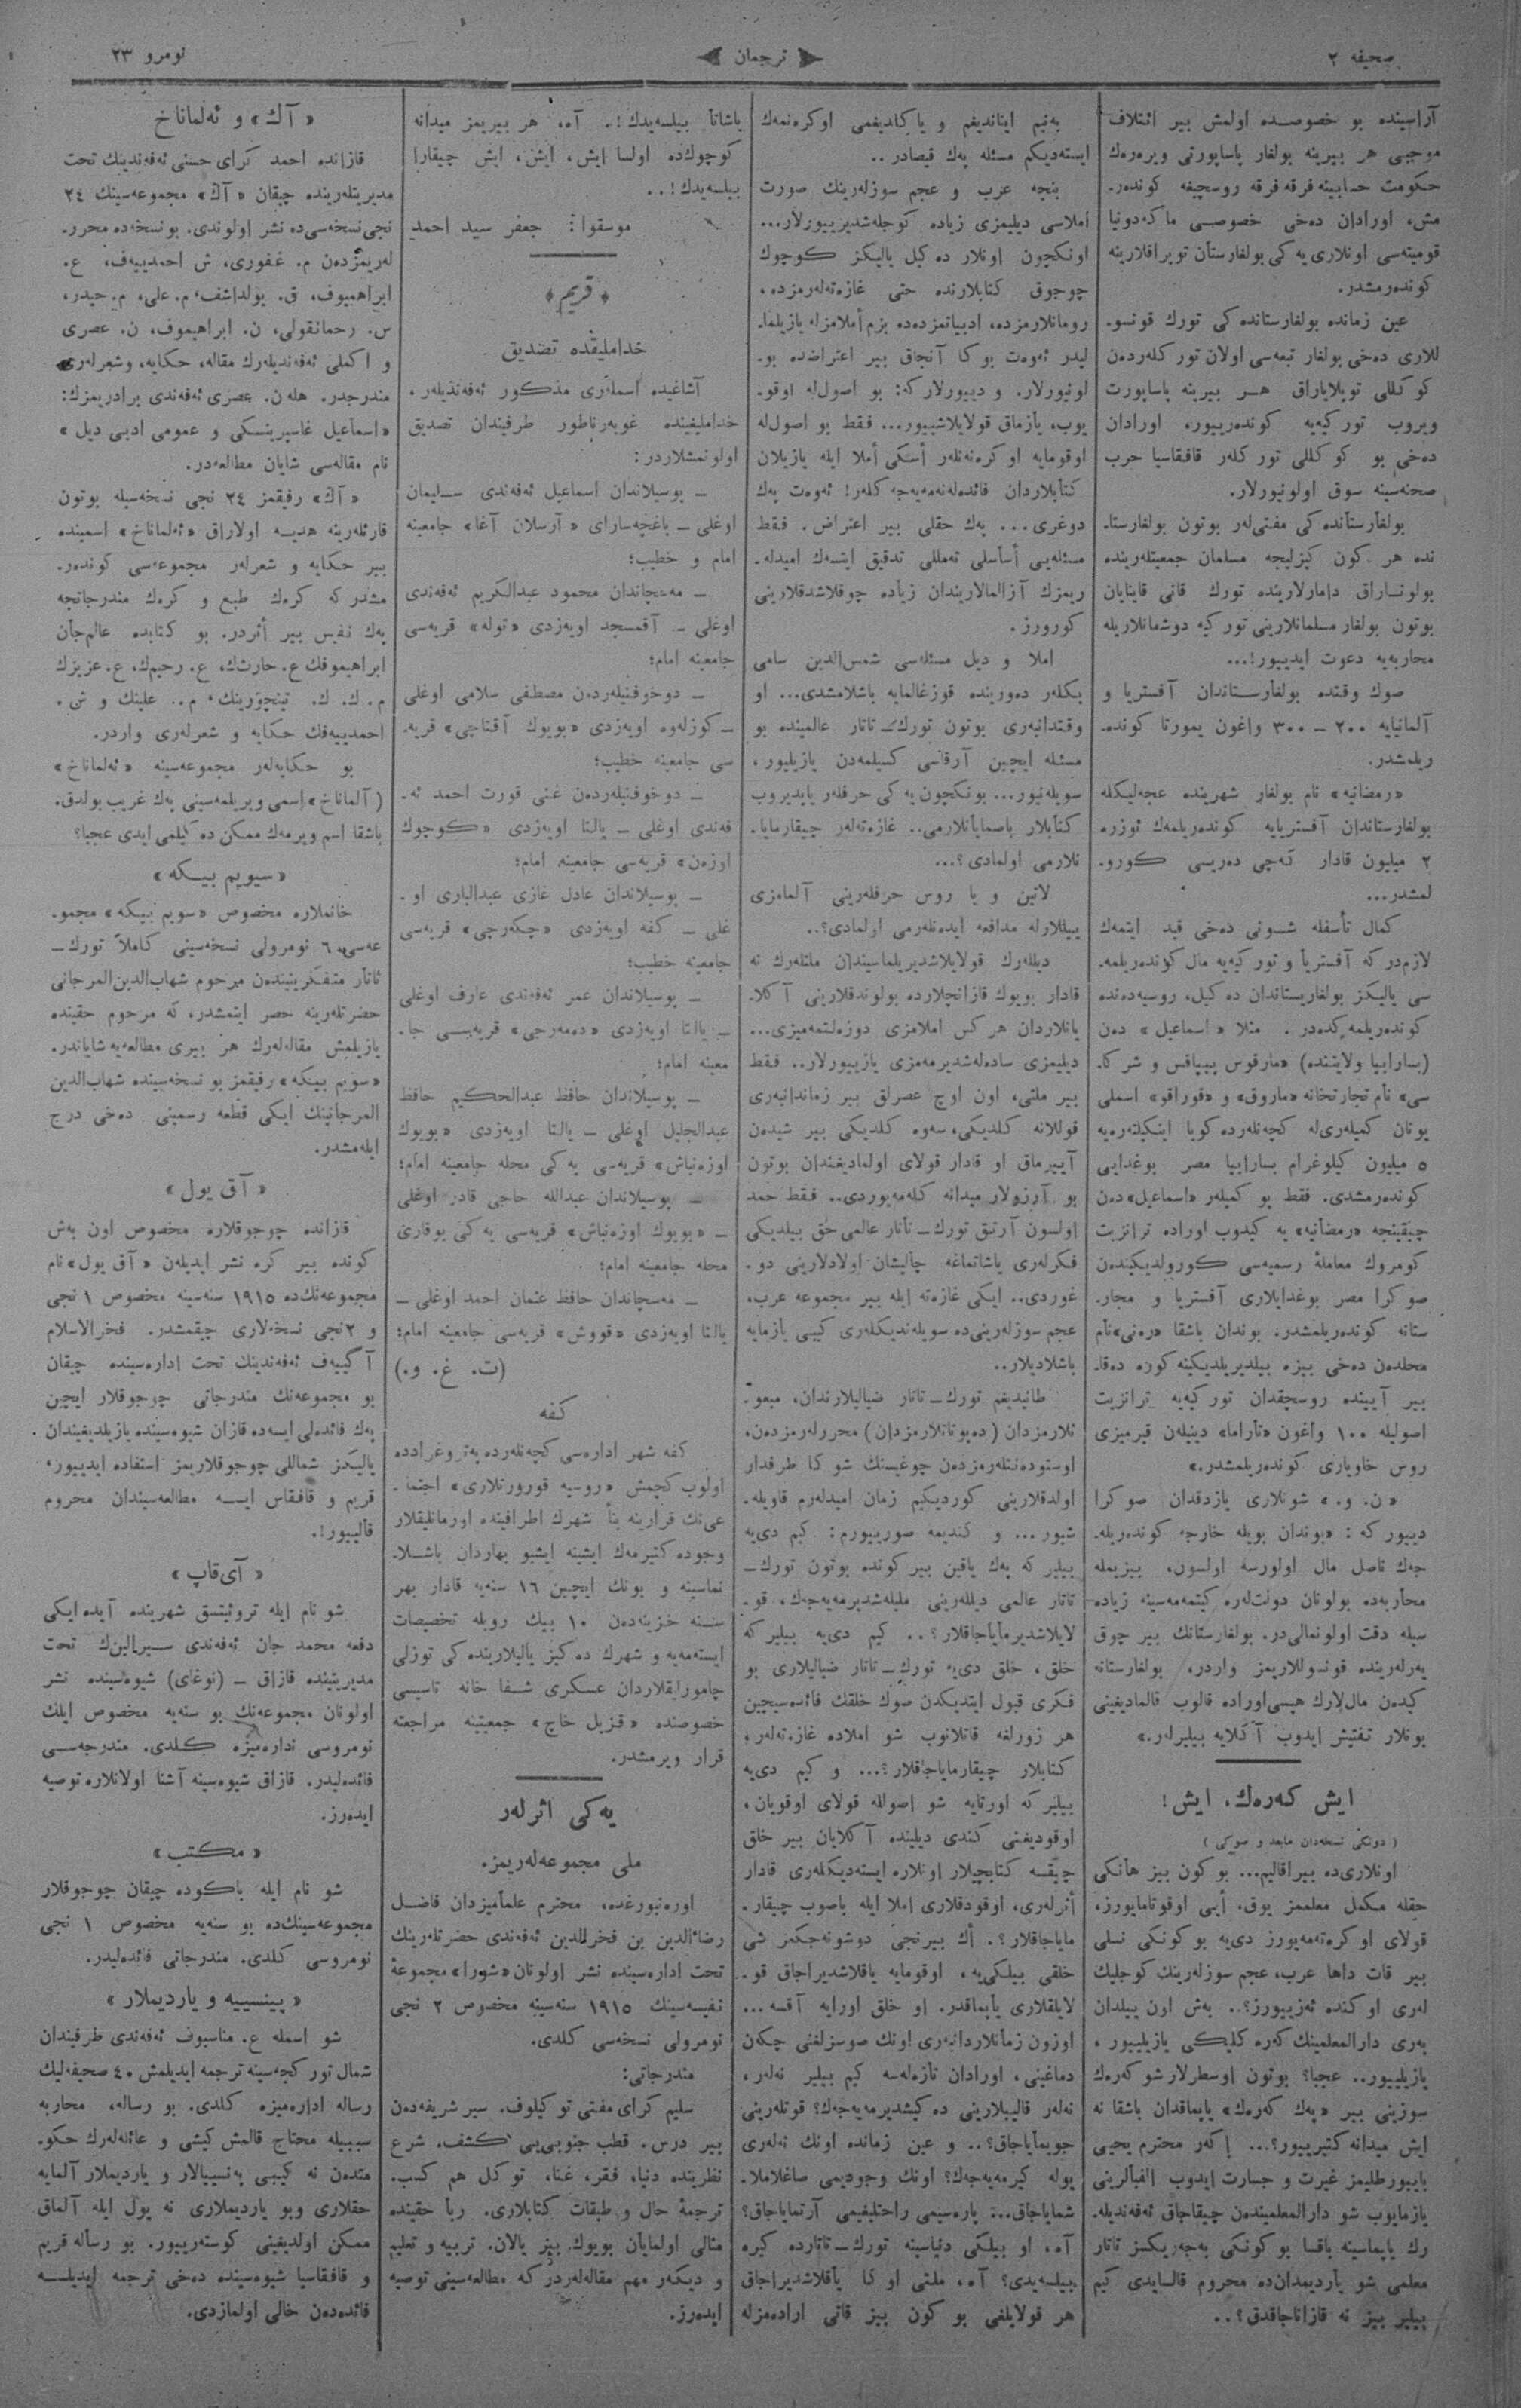 صحیفه ٢
ترجمان
نومرو ٢٣
آراسینده بو خصوصـده اولمش بیر ائتلاف
موجبی هر بیرینه بولغار پاساپورتی ویره‌رەك
حكومت حسابینه فرقه فرقه روسچیغه كونده‌ر۔
مش، اورادان دەخی خصوصـی ماكه‌دونیا
قومیته‌سی اونلاری یه‌كی بولغارستان توپراقلارینه
كونده‌رمشدر.
عین زمانده بولغارستانده‌كی تورك قونسو۔
للاری دەخی بولغار تبعه‌سی اولان توركلەردەن
كوكللی توپلایاراق هـر بیرینه پاساپورت
ویروب توركیه‌یه كونده‌رییور، اورادان
دەخی بو كوكللی توركلەر قافقاسیا حرب
صحنه‌سینه سوق اولونیورلار.
بولغارستانده‌كی مفتی‌لەر بوتون بولغارستا۔
نده هر كون كیزلیجه مسلمان جمعیتلەرینده
بولونـاراق دامارلارینده تورك قانی قاینایان
بوتون بولغار مسلمانلارینی توركیه دوشمانلاریله
محاربه‌یه دعوت ایدییور!...
صوك وقتده بولغارسـتاندان آفستریا و
آلمانیایه ٢٠٠ ــ ٣٠٠ واغون یمورتا كونده۔
ریلمشدر.
«رمضانیه» نام بولغار شهرینده عجه‌لیكله
بولغارستاندان آفستریایه كونده‌ریلمەك ئوزره
٢ میلیون قادار كه‌چی دەریسی كورو۔
لمشدر...
كمال تأسفله شـونی دەخی قید ایتمەك
لازمدركه آفستریا و توركیه‌یه مال كونده‌ریلمه۔
سی یالیكز بولغاریستاندان ده‌كیل، روسیه‌دەنده
كونده‌ریلمه‌كده‌در. مثلا «اسماعیل» دەن
(بسارابیا ولایتنده) «مارقوس پیپاقس و شركا۔
سی» نام تجارتخانه «ماروق» و «قوراقو» اسملی
یونان كمیله‌ری‌له كچه‌نلەرده كویا اینكیلته‌ره‌یه
٥ میلیون كیلوغرام بسارابیا مصر بوغدایی
كونده‌رمشدی. فقط بو كمیلەر «اسماعیل» دەن
چیقینجه «رمضانیه» یه كیدوب اوراده ترانزیت
كومروك معاملهٔ رسمیه‌سی كورولدیكیندەن
صوكرا مصر بوغدایلاری آفستریا و مجار۔
ستانه كونده‌ریلمشدر. بوندان باشقا «رەنی» نام
محلدەن دەخی بیزه بیلدیریلدیكینه كوره دەقا۔
بیر آیینده روسچقدان توركیه‌یه ترانزیت
اصولیله ١٠٠ واغون «تاراما» دینیلەن قیرمیزی
روس خاویاری كونده‌ریلمشدر.»
«ن. و.» شونلاری یازدقدان صوكرا
دییوركه: «بوندان بویله خارجه كونده‌ریله۔
جەك ناصل مال اولورسه اولسون، بیزیمله
محاربه‌ده بولونان دولت‌لەره كیتمه‌مه‌سینه زیاده۔
سیله دقت اولونمالی‌در. بولغارستانك بیر چوق
یه‌رلەرینده قونسوللاریمز واردر، بولغارستانه
كیدەن مال‌لارك هپسی اوراده قالوب قالمادیغینی
بونلار تفتیش ایدوب آكلایه بیلیرلەر.»
ایش كه‌رەك، ایش!
( دونكی نسخه‌دان مابعد و صوكی )
اونلاری‌ده بیراقالیم... بوكون بیز هانكی
حقله مكمل معلممز یوق. أیی اوقوتامایورز،
قولای اوكره‌ته‌مه‌یورز دییه بوكونكی نسلی
بیر قات داها عرب، عجم سوزلەرینك كوجلیك
لەری اوكنده ئه‌زییورز؟.. بەش اون ییلدان
بەری دارالمعلمینك كه‌ره‌كلیكی یازیلییور،
یازیلییور.. عجبا؟ بوتون اوسطرلار شو كه‌رەك
سوزینی بیر «پەك كه‌رەك» یاپماقدان باشقا نه
ایش میدانه كتیرییور؟... إكەر محترم یحیی
بایبورطلیمز غیرت و جسارت ایدوب الفبالرینی
یازمایوب شو دارالمعلمیندەن چیقاجاق ئه‌فه‌ندیله۔
رك یاپماسینه باقسا بوكونكی به‌جه‌ریكسز تاتار
معلمی شو یاردیمدان‌ده محروم قالـایدی كیم
بیلیر بیز نه قازاناجاقدق؟..
بەنیم ایناندیغم و یاكلدیغمی اوكره‌نمەك
ایسته‌دیكم مسئله پەك قیصادر..
بنجه عرب و عجم سوزلەرینك صورت
أملاسی دیلیمزی زیاده كوجله‌شدیریییورلار...
اونكچون اونلار ده‌كیل یالیكز كوچوك
چوجوق كتابلارنده حتی غازه‌ته‌لەرمزده،
رومانلارمزده، ادبیاتمزده‌ده بزم أملامزله یازیلما۔
لیدر ئه‌وەت بوكا آنجاق بیر اعتراض‌ده بو۔
لونیورلار. و دییورلاركه: بو اصول‌له اوقو۔
یوب، یازماق قولایلاشییور... فقط بو اصول‌له
اوقومایه اوكره‌نه‌نلەر أسكی أملا ایله یازیلان
كتابلاردان فائده‌له‌نه‌مه‌یه‌جه‌كلەر! ئه‌وەت پەك
دوغری... پەك حقلی بیر اعتراض. فقط
مسئله‌یی أساسلی ته‌مللی تدقیق ایتسەك امیدله۔
ریمزك آزالمالاریندان زیاده چوقلاشدقلارینی
كورورز.
املا و دیل مسئله‌سی شمس‌الدین سامی
بكلەر دەورینده قوزغالمایه باشلامشدی... او
وقتدانبه‌ری بوتون تورك‌ــ تاتار عالمینده بو
مسئله ایچین آرقاسی كسیلمەدن یازیلیور،
سویله‌نیور... بونكچون یه‌كی حرفلەر یاپدیروب
كتابلار باصمایانلارمی.. غازه‌ته‌لەر چیقارمایا۔
نلارمی اولمادی؟...
لاتین و یا روس حرفلەرینی آلمامزی
ییللارله مدافعه ایده‌نلەرمی اولمادی؟..
دیللەرك قولایلاشدیریلماسیندان ملتلەرك نه
قادار بویوك قازانجلارده بولوندقلارینی آكلا۔
یانلاردان هركس املامزی دوزه‌لتمه‌میزی...
دیلیمزی ساده‌له‌شدیرمه‌مزی یازییورلار.. فقط
بیر ملتی، اون اوچ عصرلق بیر زماندانبه‌ری
قوللانه كلدیكی، سەوه كلدیكی بیر شیدەن
آییرماق او قادار قولای اولمادیغندان بوتون
بو آرزولار میدانه كله‌مه‌یوردی.. فقط حمد
اولسون آرتق تورك ــ تاتار عالمی حق بیلدیكی
فكرلەری یاشاتماغه چالیشان اولادلارینی دو۔
غوردی.. ایكی غازه‌ته ایله بیر مجموعه عرب،
عجم سوزلەرینی‌ده سویله‌ندیكلەری كیبی یازمایه
باشلادیلار..
طانیدیغم تورك ــ تاتار ضیالیلارندان، مبعو۔
ثلارمزدان (ده‌پوتاتلارمزدان) محررلەرمزدەن،
اوستوده‌نتلەرمزدەن چوغیسنك شوكا طرفدار
اولدقلارینی كوردیكیم زمان امیدلەرم قاویله۔
شیور... و كندیمه صورییورم: كیم دییه
بیلیر كه پەك یاقین بیر كونده بوتون تورك ــ
تاتار عالمی دیللەرینی ملیله‌شدیرمه‌یه‌جەك، قو۔
لایلاشدیرمایاجاقلار؟.. كیم دییه بیلیركه
خلق، خلق دییه تورك ــ تاتار ضیالیلاری بو
فكری قبول ایتدیكدن صوك خلقك فائده‌سیچین
هر زورلغه قاتلانوب شو املاده غازه‌ته‌لەر،
كتابلار چیقارمایاجاقلار؟... و كیم دییه
بیلیركه اورتایه شو اصوللە قولای اوقویان،
اوقودیغنی كندی دیلینده آكلایان بیر خلق
چیقـسه كتابچیلار اونلاره ایسته‌دیكلەری قادار
أثرلەری، اوقودقلاری املا ایله یاصوب چیقار۔
مایاجاقلار؟. أك بیرنجی دوشونه‌جكمز شی
خلقی بیلكی‌یه، اوقومایه یاقلاشدیراجاق قو۔
لایلقلاری یاپماقدر. او خلق اورایه آقسه...
اوزون زمانلاردانبه‌ری اونك صوسزلغنی چكەن
دماغینی، اورادان تازه‌له‌سه كیم بیلیر نه‌لەر،
نه‌لەر قالیبلارینی ده‌كیشدیرمه‌یه‌جەك؟ قوتلەرینی
جویمایاجاق؟.. و عین زمانده اونك ئه‌لەری
یوله كیرمه‌یه‌جەك؟ اونك وجودیمی صاغلاملا۔
شمایاجاق... پاره‌سیمی راحتلیغیمی آرتمایاجاق؟
آه، او بیلكی دنیاسینه تورك ــ تاتارده كیره
بیلسه‌یدی؟ آه، ملتی اوكا یاقلاشدیراجاق
هر قولایلغی بوكون بیز قاتی اراده‌مزله
یاشاتا بیلسه‌یدك!. آه، هر بیریمز میدانه
كوچوك‌ده اولسا ایش، ایش، ایش چیقارا
بیلسه‌یدك!..
موسقوا: جعفر سید احمد
«قریم»
خداملیقده تصدیق
آشاغیده اسملەری مذكور ئه‌فه‌ندیلەر،
خداملیغینده غوبەرناطور طرفیندان تصدیق
اولونمشلاردر:
ــ یوسیلاندان اسماعیل ئه‌فه‌ندی سـلیمان
اوغلی ــ باغچه‌سارای «آرسلان آغا» جامعینه
امام و خطیب؛
ــ مه‌شچاندان محمود عبدالكریم ئه‌فه‌ندی
اوغلی ــ آقمسجد اویه‌زدی «توله» قریه‌سی
جامعینه امام؛
ــ دوخوفنیلەردەن مصطفی سلامی اوغلی
ــ كوزله‌وه اویه‌زدی «بویوك آقتاچی» قریه۔
سی جامعینه خطیب؛
ــ دوخوفنیلەردەن غنی قورت احمد ئه۔
فه‌ندی اوغلی ــ یالتا اویه‌زدی «كوچوك
اوزەن» قریه‌سی جامعینه امام؛
ــ یوسیلاندان عادل غازی عبدالباری او۔
غلی ــ كفه اویه‌زدی «چكه‌رچی» قریه‌سی
جامعینه خطیب؛
ــ یوسیلاندان عمر ئه‌فه‌ندی عارف اوغلی
ــ یالتا اویه‌زدی «دەمه‌رجی» قریه‌سـی جا۔
معینه امام؛
ــ یوسیلاندان حافظ عبدالحكیم حافظ
عبدالجلیل اوغلی ــ یالتا اویه‌زدی «بویوك
اوزه‌نباش» قریه‌سی یه‌كی محله جامعینه امام؛
ــ یوسیلاندان عبدالله حاجی قادر اوغلی
ــ «بویوك اوزه‌نباش» قریه‌سی یه‌كی یوقاری
محله جامعینه امام؛
ــ مه‌سچاندان حافظ عثمان احمد اوغلی ــ
یالتا اویه‌زدی «قووش» قریه‌سی جامعینه امام؛
(ت. غ. و.)
كفه
كفه شهر اداره‌سی كچه‌نلەرده پەتروغرادده
اولوب كچمش «روسیه قورورتلاری» اجتما۔
عی‌نك قرارینه بنأ شهرك اطرافینده اورمانلیقلار
وجوده كتیرمەك ایشینه ایشبو بهاردان باشـلا۔
نماسینه و بونك ایچین ١٦ سنه‌یه قادار بهر
سـنه خزینه‌دەن ١٠ بیك روبله تخصیصات
ایسته‌مه‌یه و شهرك ده‌كیز یالیلارینده‌كی توزلی
چاموراقلاردان عسكری شـفا خانه تاسیسی
خصوصنده «قـزیل خاچ» جمعیتینه مراجعته
قرار ویرمشدر.
یه‌كی اثرلەر
ملی مجموعه‌لەریمز.
اوره‌نبورغده، محترم علمامیزدان فاضـل
رضاءالدین بن فخرالدین ئه‌فه‌ندی حضرتلەرینك
تحت اداره‌سینده نشر اولونان «شورا» مجموعهٔ
نفیسه‌سینك ١٩١٥ سنه‌سینه مخصوص ٢ نجی
نومرولی نسخه‌سی كلدی.
مندرجاتی:
سلیم كرای مفتی توكیلوف. سیر شریفه‌دەن
بیر درس. قطب جنوبی‌یی كشف. شرع
نظرینده دنیا، فقر، غنا، توكل هم كسب.
ترجمهٔ حال و طبقات كتابلاری. ربا حقینده
مثالی اولمایان بویوك بیر یالان. تربیه و تعلیم
و دیكەر مهم مقاله‌لەردركه مطالعه‌سینی توصیه
ایدەرز.
«آك» و ئه‌لماناخ
قازانده احمد كرای حسنی ئه‌فه‌ندینك تحت
مدیریتلەرینده چیقان «آك» مجموعه‌سینك ٢٤
نجی نسخه‌سی‌ده نشر اولوندی. بو نسخه‌ده محرر۔
لەریمزدەن م. غفوری، ش احمدییه‌ف، ع.
ابراهیموف، ق. یولداشف، م. علی، م. حیدر،
س. رحمانقولی، ن. ابراهیموف، ن. عصری
و اكملی ئه‌فه‌ندیلەرك مقاله، حكایه، وشعرلەری
مندرجدر. هله ن. عصری ئه‌فه‌ندی برادریمزك:
«اسماعیل غاسپرینسكی و عمومی ادبی دیل»
نام مقاله‌سی شایان مطالعه‌در.
«آك» رفیقمز ٢٤ نجی نسخه‌سیله بوتون
قارئلەرینه هدیـه اولاراق «ئه‌لماناخ» اسمینده
بیر حكایه و شعرلەر مجموعه‌سی كونده‌ر۔
مشدركه كرەك طبع و كرەك مندرجاتجه
پەك نفیس بیر أثردر. بو كتابده عالمجان
ابراهیموفك ع. حارث‌ك، ع. رحیم‌ك، ع. عزیزك
م. ك. ك. تینچورینك، م.. علینك و ش.
احمدییه‌فك حكایه و شعرلەری واردر.
بو حكایه‌لەر مجموعه‌سینه «ئه‌لماناخ»
(آلماناخ) إسمی ویریلمه‌سینی پەك غریب بولدق.
باشقا اسم ویرمەك ممكن ده‌كیلمی ایدی عجبا؟
«سیویم بیـكه»
خانملاره مخصوص «سویم بیكه» مجمو۔
عه‌سی ٦ نومرولی نسخه‌سینی كاملاً تورك ــ
تاتار متفكریندەن مرحوم شهاب‌الدین المرجانی
حضرتلەرینه حصر ایتمشدر، كه مرحوم حقینده
یازیلمش مقاله‌لەرك هر بیری مطالعه‌یه شایاندر.
«سویم بیكه» رفیقمز بو نسخه‌سینده شهاب‌الدین
المرجانینك ایكی قطعه رسمینی دەخی درج
ایله‌مشدر.
«آق یول»
قازانده چوجوقلاره مخصوص اون بەش
كونده بیر كره نشر ایدیلەن «آق یول» نام
مجموعه‌نك‌ده ١٩١٥ سنه‌سینه مخصوص ١ نجی
و ٢ نجی نسخه‌لاری چیقمشدر. فخرالاسلام
آكییه‌ف ئه‌فه‌ندینك تحت إداره‌سینده چیقان
بو مجموعه‌نك مندرجاتی چوجوقلار ایچین
پەك فائده‌لی ایسه‌ده قازان شیوه‌سینده یازیلدیغیندان
یالیكز شماللی چوجوقلاریمز استفاده ایدییور،
قریم و قافقاس ایسـه مطالعه‌سیندان محروم
قالییور!.
«آی‌قاپ»
شو نام ایله تروئیتسق شهرینده آیده ایكی
دفعه محمد جان ئه‌فه‌ندی سـیرالین‌ك تحت
مدیریتینده قازاق ــ (نوغای) شیوه‌سینده نشر
اولونان مجموعه‌نك بو سنه‌یه مخصوص ایلك
نومروسی نداره‌میزه كلدی. مندرجه‌سـی
فائده‌لیدر. قازاق شیوه‌سینه آشنا اولانلاره توصیه
ایدەرز.
«مكتب»
شو نام ایله باكوده چیقان چوجوقلار
مجموعه‌سینك‌ده بو سنه‌یه مخصوص ١ نجی
نومروسی كلدی. مندرجاتی فائده‌لیدر.
«پینسییه و یاردیملار»
شو اسمله ع. مناسیوف ئه‌فه‌ندی طرفیندان
شمال توركجه‌سینه ترجمه ایدیلمش ٤٠ صحیفه‌لیك
رساله إداره‌میزه كلدی. بو رساله، محاربه
سببیله محتاج قالمش كیشی و عائله‌لەرك حكو۔
متدەن نه كیبی پەنسییالار و یاردیملار آلمایه
حقلاری وبو یاردیملاری نه یول ایله آلماق
ممكن اولدیغینی كوسته‌رییور. بو رساله قریم
و قافقاسیا شیوه‌سینده دەخی ترجمه ایدیلـسه
فائده‌دەن خالی اولمازدی.